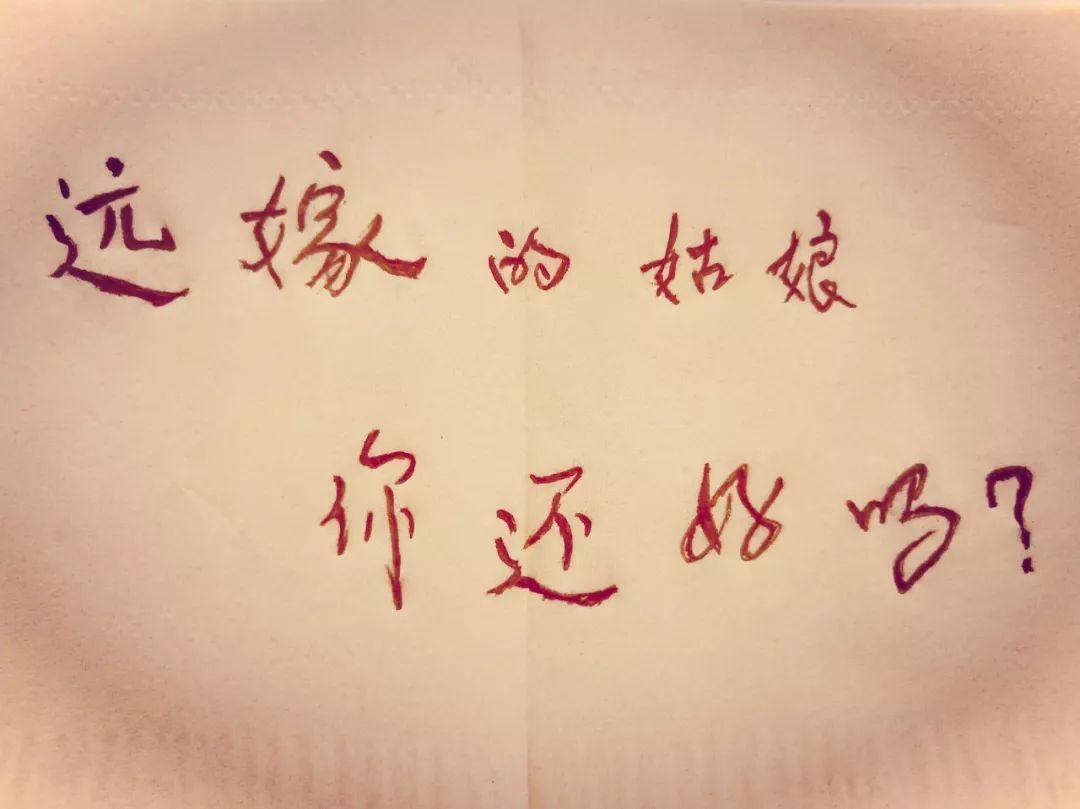 远嫁的姑娘
你还好吗?